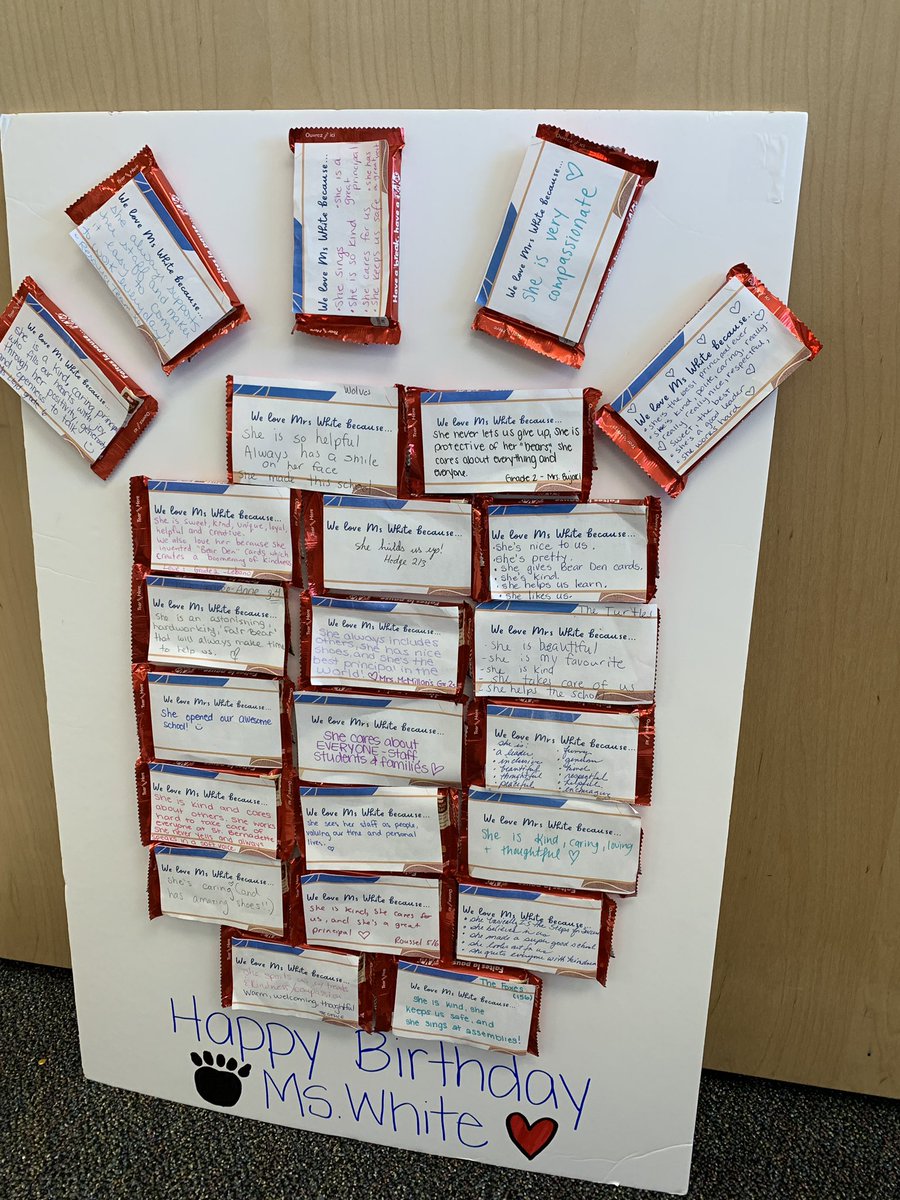 We love Ms White Because...
She is a kind, caring principal
who fills our hearts with joy
through her positivity, gratefulness
and openness to talk
We love Ms White Because...
Ouvrez // ici
We love Ms White Because...
• she is a
• she sings great principal
• she is so kind • she has
• she cares for us
• she keeps us safe
Have a break, have a
We love Mrs White Because...
she is very
compassionate ♡
We love Ms White Because...
she's the best principal ever
she's kind, polite, caring, really
really really nice, respectful,
sweet, she's the best
• she's a good leader
• she works hard
Wolves
We love Mrs White Because...
She is so helpful
Always has a smile
on her face
She made this school
We love Mrs White Because...
She never lets us give up, she is
protective of her "bears", she
cares about everything and
everyone.
Grade 2 - Mrs
We love Ms White Because...
She is sweet, kind, unique, loyal,
helpful and creative.
We also love her because she
invented "Bear Den" cards which
creates a boomerang of kindness
We love Ms White Because...
she builds us up!
Hodge 2/3
We love Ms White Because...
• She's nice to us.
• she's pretty.
• she gives Bear Den cards.
• she's kind.
• she helps us learn.
• she likes us.
We love Ms White Because...
She is an astonishing,
hardworking, fair bear
that will always make time
to help us. ♡
We love Ms White Because...
She always includes
others, she has nice
shoes, and she's the
best principal in the
world! ♡ Mrs. McMillan's Gr 2
The Turtles
We love Mrs White Because...
- She is beautiful
- She is my favourite
- she is kind
- she takes care of us
- she helps the school
We love Ms White Because...
She opened our awesome
school!
We love Mrs White Because...
She cares about
EVERYONE - staff,
students & families ♡
We love Mrs White Because...
she is:
• a leader
• inclusive
• beautiful
• thoughtful
• grateful
• funny
• kind
• respectful
• helpful
• encouraging
We love Ms White Because...
She is kind and cares
about others. She works
hard to take care of
everyone at St. Bernadette
She never yells and always
speaks in a soft voice.
We love Ms White Because...
she sees her staff as people,
valuing our time and personal
lives. ♡
We love Mrs White Because...
She is kind, caring, loving
+ thoughtful ♡
We love Ms White Because...
She's caring (and
has amazing shoes!!)
We love Ms White Because...
She is kind, she cares for
us, and she's a great
principal ♡
Roussel 5/6
We love Ms White Because...
• she believes in us
• she made a super good school
• she looks out for us
We love Ms White Because...
Warm, welcoming, thoughtful
The Foxies
(1S6)
We love Mrs White Because...
She is kind, she
keeps us safe, and
she sings at assemblies!
Happy Birthday
Ms. White